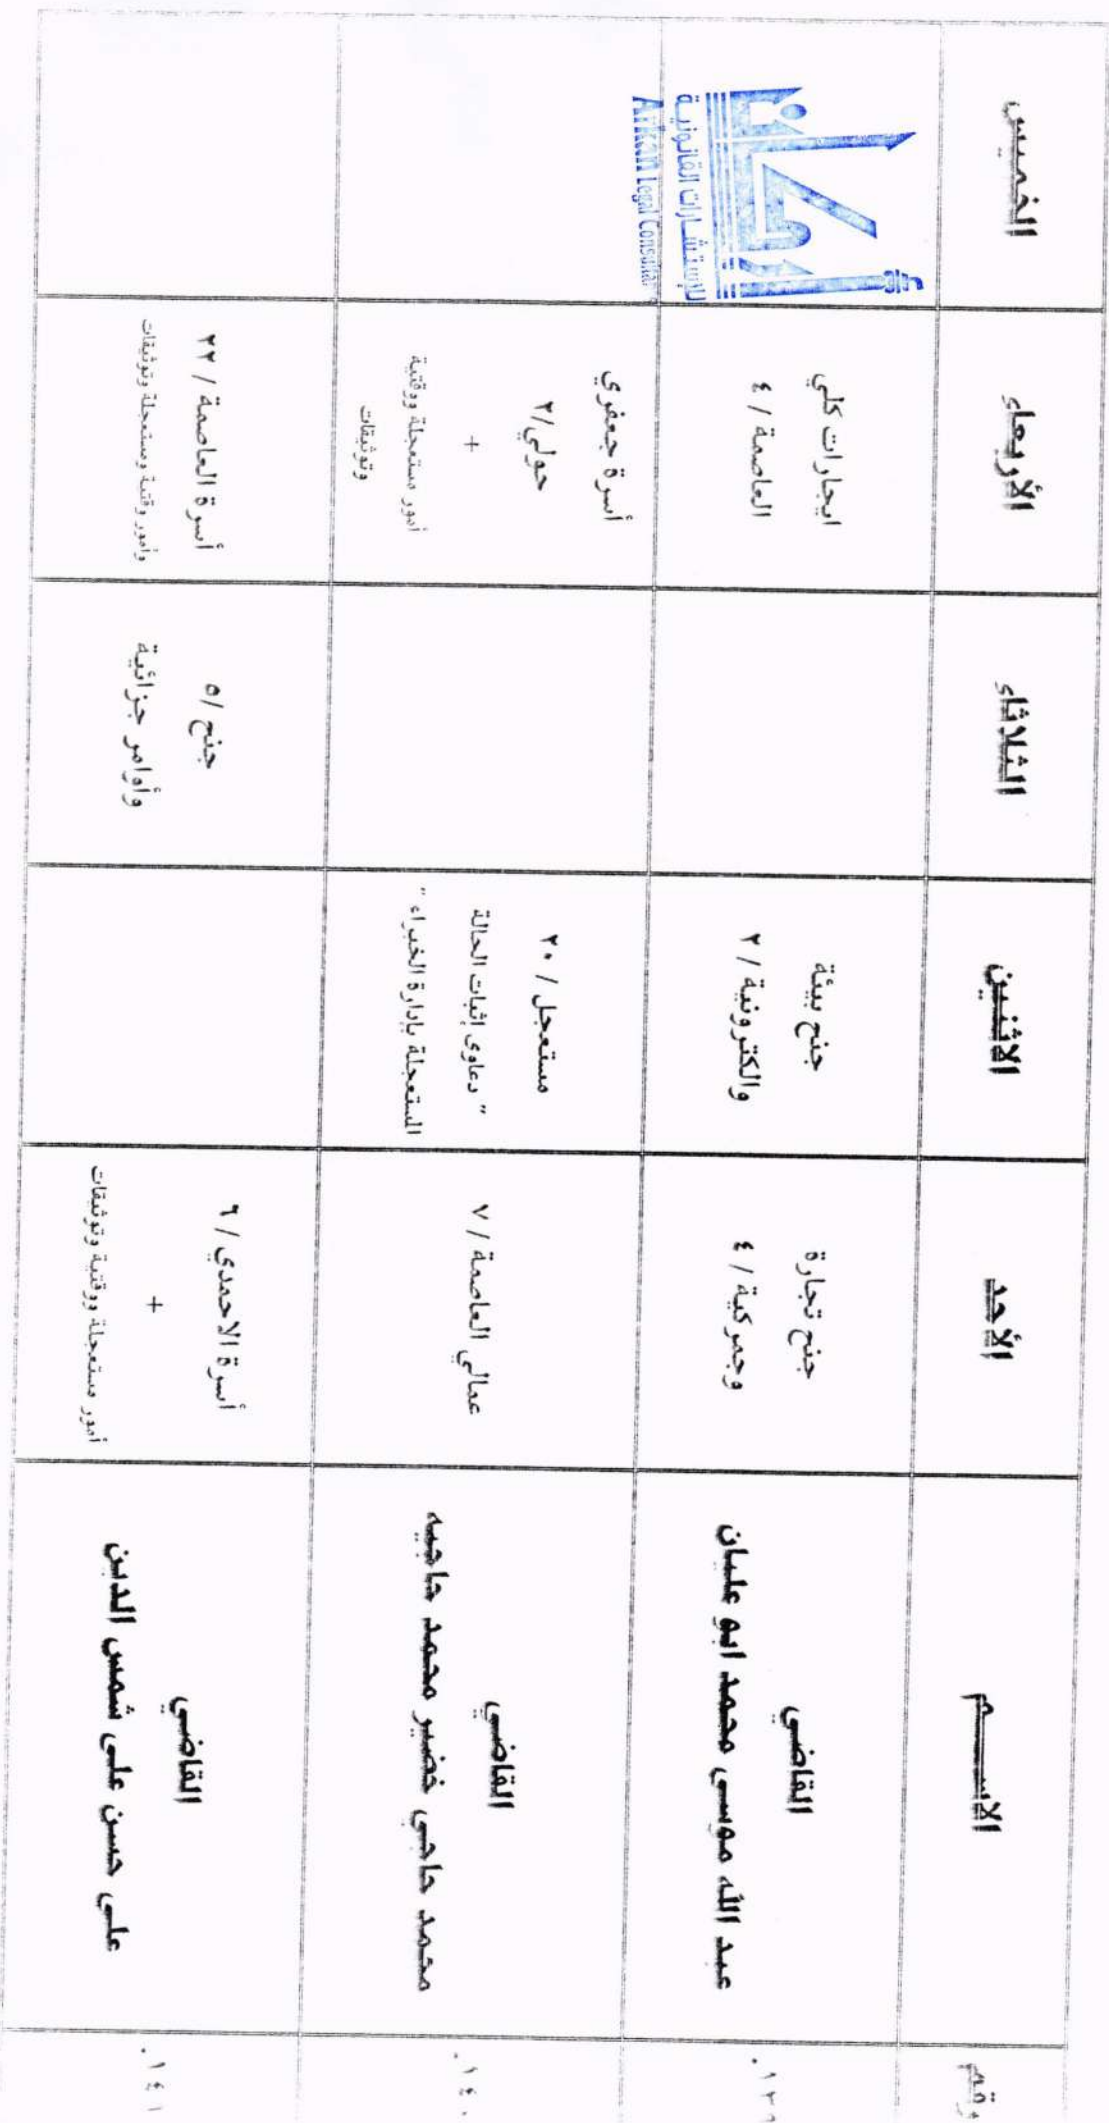 رقم
الاســـم
الأحد
الاثنين
الثلاثاء
الأربعاء
الخميس
١٣٩.
القاضي
عبد الله موسى محمد ابو عليان
جنح تجارة
وجمركية / ٤
جنح بيئة
والكترونية / ٢
ايجارات كلي
العاصمة / ٤
أركان
للإستشارات القانونية
Arkan Legal Consultant
١٤٠.
القاضي
محمد حاجي خضير محمد حاجيه
عمالي العاصمة / ٧
مستعجل / ٢٠
" دعاوى إثبات الحالة
المستعجلة بإدارة الخبراء "
أسرة جعفري
حولي/٢
+
أمور مستعجلة ووقتية
وتوثيقات
١٤١.
القاضي
علي حسن علي شمس الدين
أسرة الاحمدي / ٦
+
أمور مستعجلة ووقتية وتوثيقات
جنح /٥
وأوامر جزائية
أسرة العاصمة / ٢٢
وأمور وقتية ومستعجلة وتوثيقات